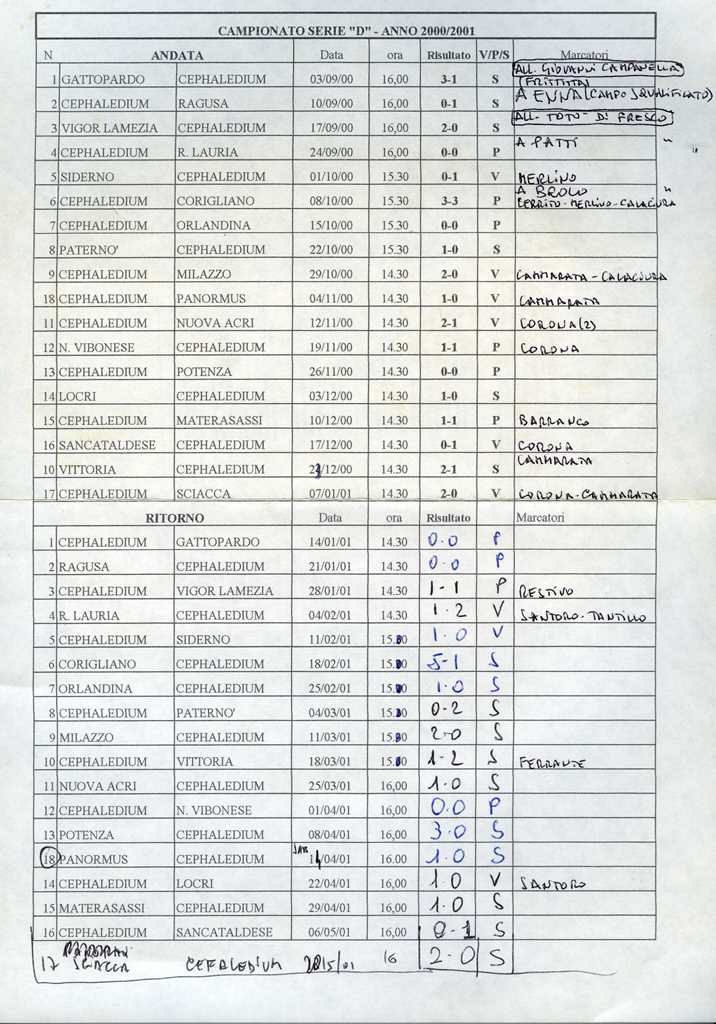 CAMPIONATO SERIE "D" - ANNO 2000/2001
N ANDATA Data ora Risultato V/P/S Marcatori
ALL. GIOVANNI CAMPANELLA
1 GATTOPARDO CEPHALEDIUM 03/09/00 16,00 3-1 S (FRITTITTA)
2 CEPHALEDIUM RAGUSA 10/09/00 16,00 0-1 S A ENNA (CAMPO SQUALIFICATO)
3 VIGOR LAMEZIA CEPHALEDIUM 17/09/00 16,00 2-0 S ALL. TOTO' DI FRESCO
4 CEPHALEDIUM R. LAURIA 24/09/00 16,00 0-0 P A PATTI " "
5 SIDERNO CEPHALEDIUM 01/10/00 15.30 0-1 V MERLINO
A BROLO "
6 CEPHALEDIUM CORIGLIANO 08/10/00 15.30 3-3 P CERRITO-MERLINO-CALACIURA
7 CEPHALEDIUM ORLANDINA 15/10/00 15.30 0-0 P
8 PATERNO' CEPHALEDIUM 22/10/00 15.30 1-0 S
9 CEPHALEDIUM MILAZZO 29/10/00 14.30 2-0 V CAMMARATA-CALACIURA
18 CEPHALEDIUM PANORMUS 04/11/00 14.30 1-0 V CAMMARATA
11 CEPHALEDIUM NUOVA ACRI 12/11/00 14.30 2-1 V CORONA(2)
12 N. VIBONESE CEPHALEDIUM 19/11/00 14.30 1-1 P CORONA
13 CEPHALEDIUM POTENZA 26/11/00 14.30 0-0 P
14 LOCRI CEPHALEDIUM 03/12/00 14.30 1-0 S
15 CEPHALEDIUM MATERASASSI 10/12/00 14.30 1-1 P BARRANCO
16 SANCATALDESE CEPHALEDIUM 17/12/00 14.30 0-1 V CORONA
10 VITTORIA CEPHALEDIUM 14.30 2-1 S CAMMARATA
17 CEPHALEDIUM SCIACCA 07/01/01 14.30 2-0 V CORONA-CAMMARATA
RITORNO Data ora Risultato Marcatori
1 CEPHALEDIUM GATTOPARDO 14/01/01 14.30 0-0 P
2 RAGUSA CEPHALEDIUM 21/01/01 14.30 0-0 P
3 CEPHALEDIUM VIGOR LAMEZIA 28/01/01 14.30 1-1 P RESTIVO
4 R. LAURIA CEPHALEDIUM 04/02/01 14.30 1-2 V SANTORO-TANTILLO
5 CEPHALEDIUM SIDERNO 11/02/01 1-0 V
6 CORIGLIANO CEPHALEDIUM 18/02/01 5-1 S
7 ORLANDINA CEPHALEDIUM 25/02/01 1-0 S
8 CEPHALEDIUM PATERNO' 04/03/01 0-2 S
9 MILAZZO CEPHALEDIUM 11/03/01 2-0 S
10 CEPHALEDIUM VITTORIA 18/03/01 1-2 S FERRANTE
11 NUOVA ACRI CEPHALEDIUM 25/03/01 16,00 1-0 S
12 CEPHALEDIUM N. VIBONESE 01/04/01 16,00 0-0 P
13 POTENZA CEPHALEDIUM 08/04/01 16,00 3-0 S
18 PANORMUS CEPHALEDIUM SAB. 16.00 1-0 S
14 CEPHALEDIUM LOCRI 22/04/01 16,00 1-0 V SANTORO
15 MATERASASSI CEPHALEDIUM 29/04/01 16,00 1-0 S
16 CEPHALEDIUM SANCATALDESE 06/05/01 16,00 0-1 S
17 SCIACCA CEFALEDIUM 16 2-0 S